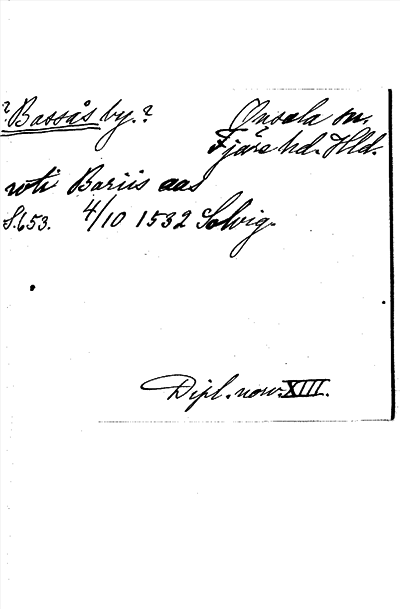 ? Bassås by. ?
Onsala sn.
Fjäre hd. Hld.
wti Bariis aas
S. 653. 4/10 1532 Solvig.
Dipl. norv. XIII.